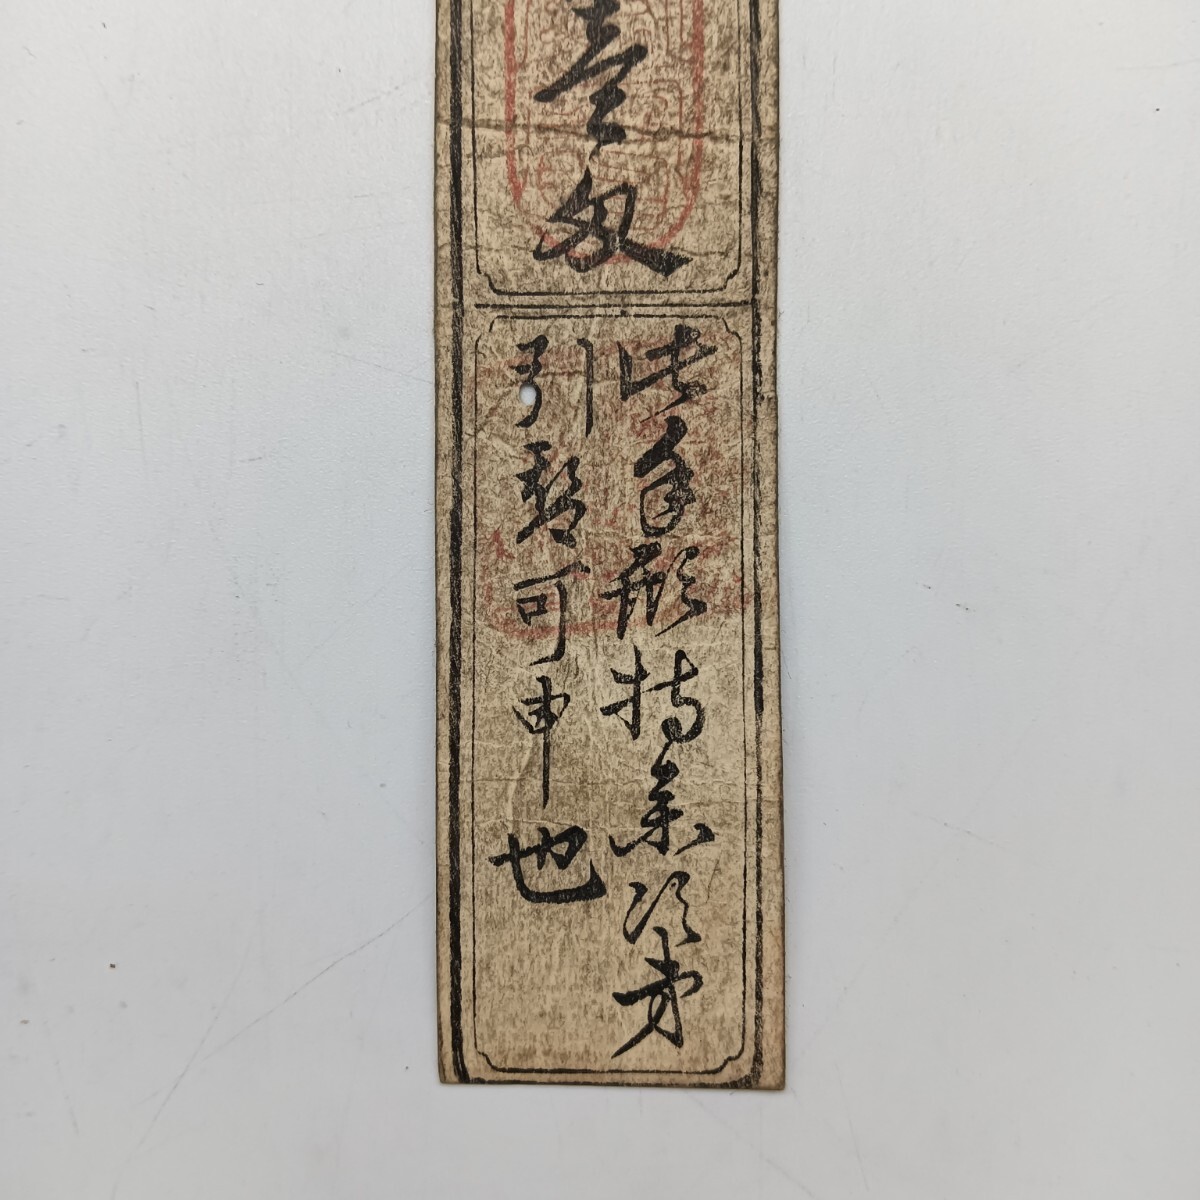 壹匁
此手形持参次第
引替可申也